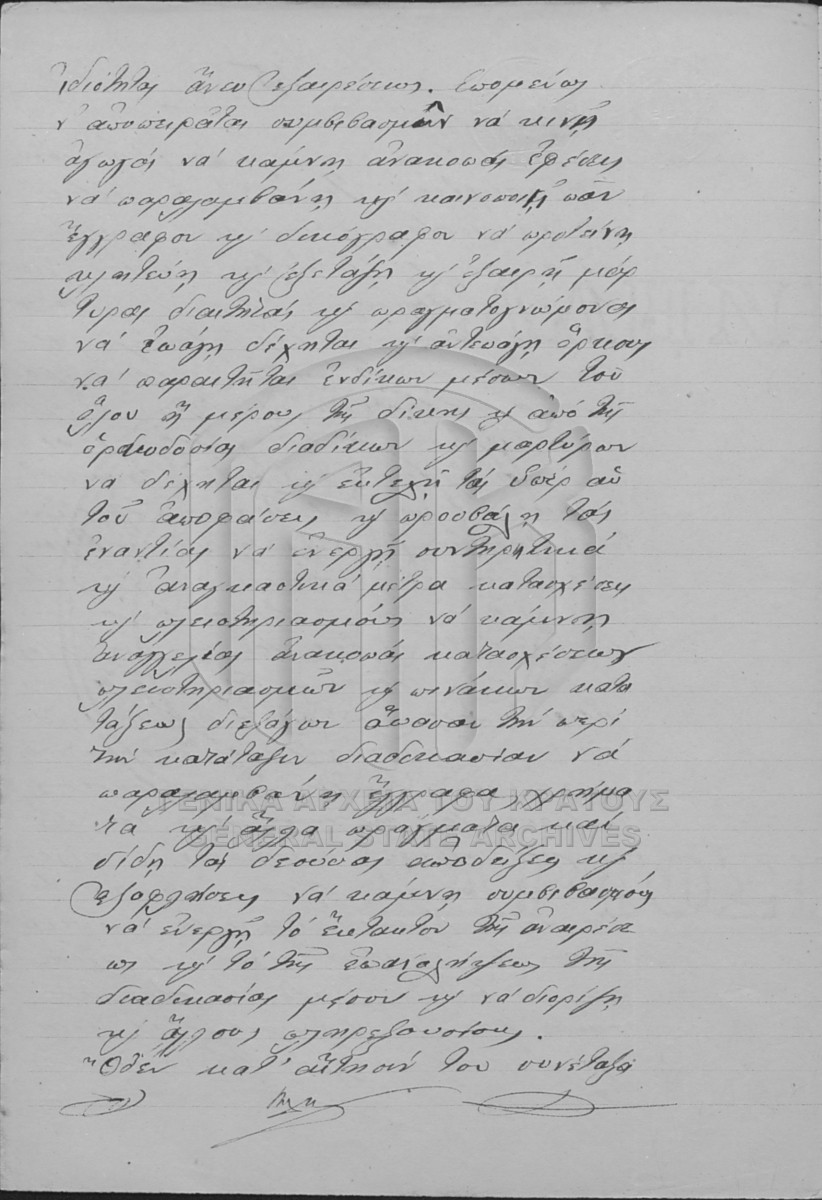 ἰδιότητας ἄνευ ἐξαιρέσεως. Ἑπομένως
ν' ἀποπειρᾶται συμβιβασμὸν νὰ κινῇ
ἀγωγὰς νὰ κάμνῃ ἀνακοπὰς ἐφέσεις
νὰ παραλαμβάνῃ καὶ κοινοποιῇ πᾶν
ἔγγραφον καὶ δικόγραφον νὰ προτείνῃ
κλητεύῃ καὶ ἐξετάζῃ καὶ ἐξαιρῇ μάρ
τυρας διαιτητὰς καὶ πραγματογνώμονας
νὰ ἐπάγῃ δέχηται καὶ ἀντεπάγῃ ὅρκους
νὰ παραιτῆται ἐνδίκων μέσων τοῦ
ὅλου ἢ μέρους τῆς δίκης καὶ ἀπὸ τῆς
ὁρκοδοσίας διαδίκων καὶ μαρτύρων
να δέχηται καὶ ἐκτελῇ τὰς ὑπὲρ αὐ
τοῦ ἀποφάσεις καὶ προσβάλῃ τὰς
ἐναντίας νὰ ἐνεργῇ συντηρητικὰ
καὶ ἀναγκαστικὰ μέτρα κατασχέσεις
καὶ πλειστηριασμοὺς νὰ κάμνῃ
ἀναγγελίας ἀνακοπὰς κατασχέσεων
πλειστηριασμῶν καὶ πινάκων κατα
τάξεως διεξάγων ἅπασαν τὴν περὶ
τὴν κατάταξιν διαδικασίαν νὰ
παραλαμβάνῃ ἔγγραφα χρήμα
τα καὶ ἄλλα πράγματα καὶ
δίδῃ τὰς δεούσας ἀποδείξεις καὶ
ἐξοφλήσεις νὰ κάμνῃ συμβιβασμοὺς
νὰ ἐνεργῇ τὸ ἔκτακτον τῆς ἀναιρέσε
ως καὶ τὸ τῆς ἐπαναλήψεως τῆς
διαδικασίας μέσον καὶ νὰ διορίζῃ
καὶ ἄλλους πληρεξουσίους.
Ὅθεν κατ' αἴτησίν του συνέταξα
ΓΕΝΙΚΑ ΑΡΧΕΙΑ ΤΟΥ ΚΡΑΤΟΥΣ
GENERAL STATE ARCHIVES